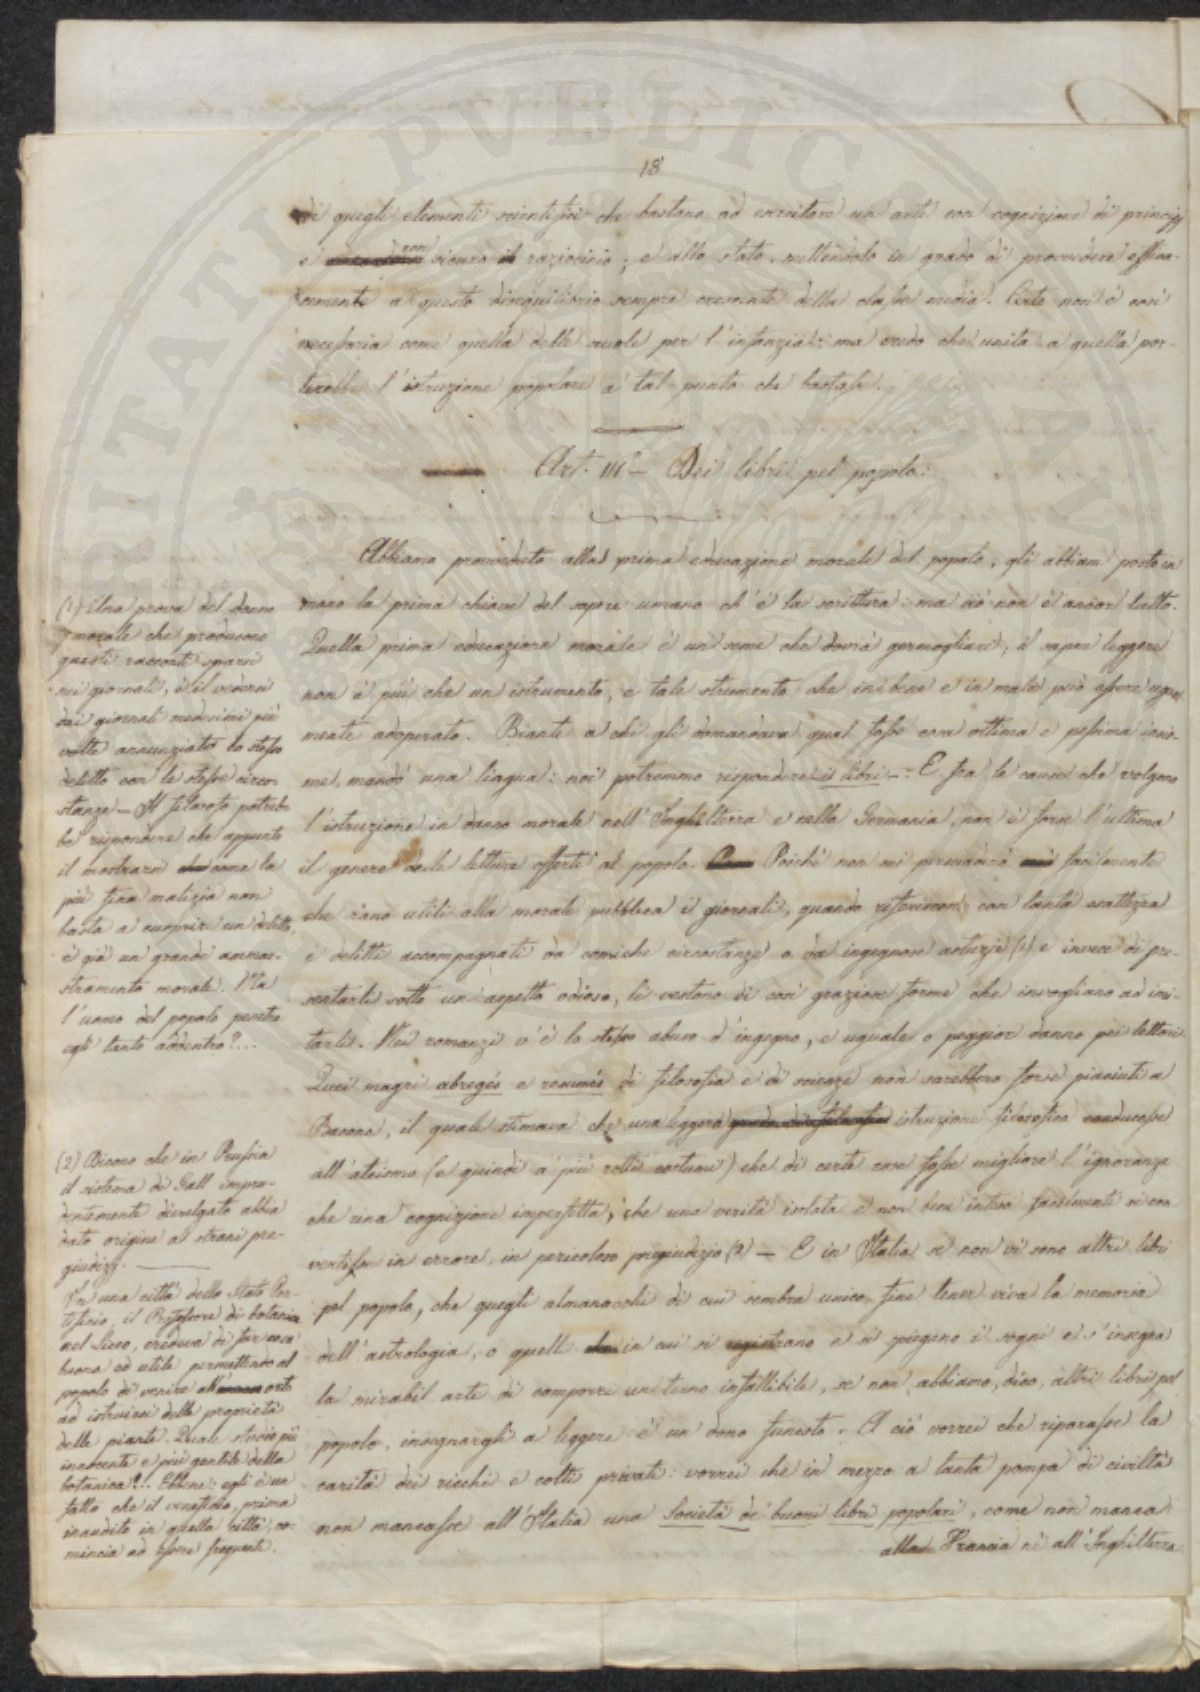 18
di quegli elementi scientifici che bastano ad esercitare un'arte con cognizione di principj
e con sicuro raziocinio; e allo stato, mettendolo in grado di provvedere effica-
cemente a questo disequilibrio sempre crescente della classe media. Certo non è così
necessaria come quella delle scuole per l'infanzia: ma credo che unita a quella por-
terebbe l'istruzione popolare a tal punto che bastasse.
Art. III.° — Dei libri pel popolo.
Abbiamo provveduto alla prima educazione morale del popolo, gli abbiam posto in
mano la prima chiave del sapere umano ch'è la scrittura: ma ciò non è ancor tutto.
Quella prima educazione morale è un seme che dovrà germogliare; il saper leggere
non è più che un istrumento, e tale strumento che in bene e in male può essere egual
mente adoperato. Biante a chi gli domandava qual fosse cosa ottima e pessima insie-
me, mandò una lingua: noi potremmo rispondere i libri —. E fra le cause che volgono
l'istruzione in danno morale nell'Inghilterra e nella Germania, non è forse l'ultima
il genere delle letture offerte al popolo. Poichè non mi persuaderò facilmente
che siano utili alla morale pubblica i giornali, quando riferiscono con tanta esattezza
i delitti accompagnati da comiche circostanze o da ingegnose astuzie (1) e invece di pre-
sentarli sotto un aspetto odioso, li vestono di così graziose forme che invogliano ad imi-
tarli. Nei romanzi v'è lo stesso abuso d'ingegno, e uguale o peggior danno pei lettori.
Quei magri abregés e resumés di filosofia e di scienze non sarebbero forse piaciuti a
Bacone, il quale stimava che una leggera istruzione filosofica conducesse
all'ateismo (e quindi a' più rotti costumi) che di certe cose fosse migliore l'ignoranza
che una cognizione imperfetta, che una verità isolata e non bene intesa facilmente si con
vertisse in errore, in pericoloso pregiudizio (2) — E in Italia se non vi sono altri libri
pel popolo, che quegli almanacchi di cui sembra unico fine tener viva la memoria
dell'astrologia, o quelli in cui si registrano e si spiegano i sogni e s'insegna
la mirabil arte di comporre un terno infallibile, se non abbiamo, dico, altri libri pel
popolo, insegnargli a leggere è un dono funesto. A ciò vorrei che riparasse la
carità dei ricchi e colti privati: vorrei che in mezzo a tanta pompa di civiltà
non mancasse all'Italia una Società de' buoni libri popolari, come non manca
alla Francia nè all'Inghilterra
(1) Una prova del danno
morale che producono
questi racconti sparsi
nei giornali, è il vedersi
dai giornali medesimi più
volte annunziato lo stesso
delitto con le stesse circo-
stanze — Il filosofo potreb-
be rispondere che appunto
il mostrarsi come la
più fina malizia non
basta a cuoprire un delitto,
è già un grande ammae-
stramento morale. Ma
l'uomo del popolo penetra
egli tanto addentro?...
(2) Dicono che in Prussia
il sistema di Gall impru-
dentemente divulgato abbia
dato origine a strani pre-
giudizj.
In una città dello Stato Pon-
tificio, il Professore di botanica
nel Liceo, credeva di far cosa
buona ed utile permettendo al
popolo di venire all'orto
ad istruirsi delle proprietà
delle piante. Quale studio più
innocente e più gentile della
botanica?.. Ebbene: egli è un
fatto che il veneficio, prima
inaudito in quella città, co-
mincia ad essere frequente.